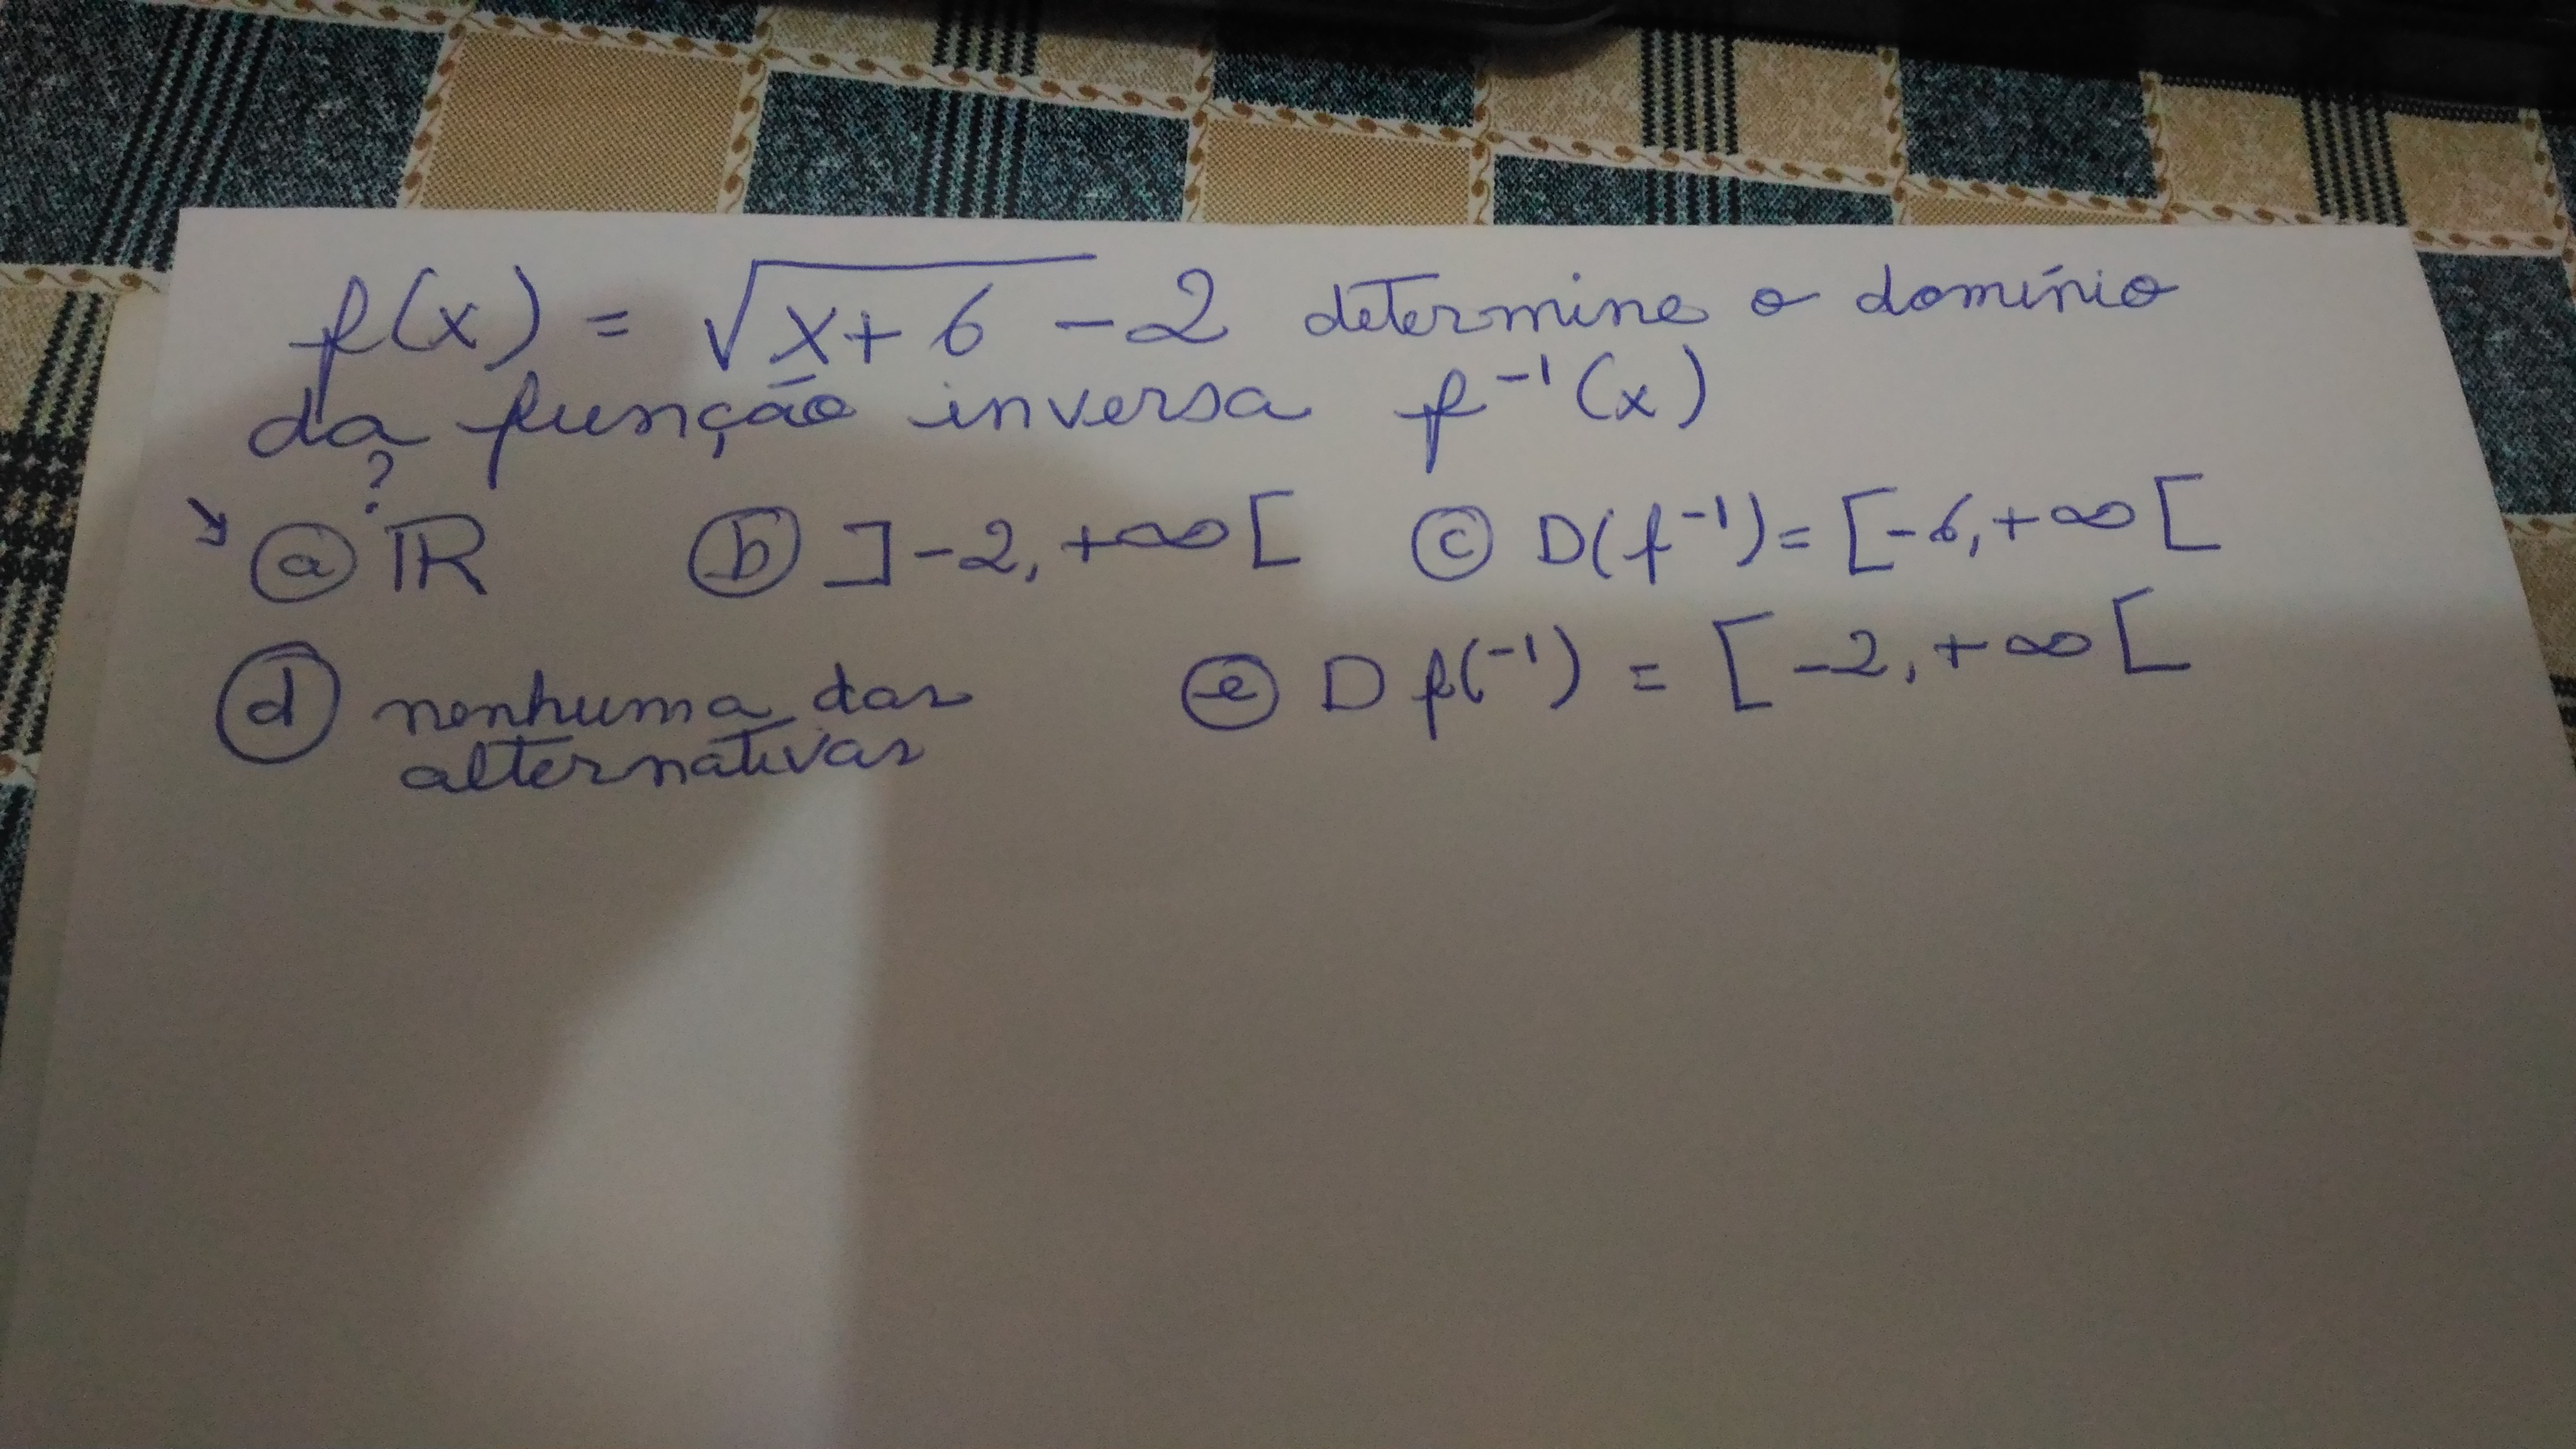 f(x) = √x+6 - 2 determine o domínio
da função inversa f⁻¹(x)
?
↘ a ℝ b ]-2, +∞[ c D(f⁻¹) = [-6, +∞[
d nenhuma das e D f(⁻¹) = [-2, +∞[
alternativas